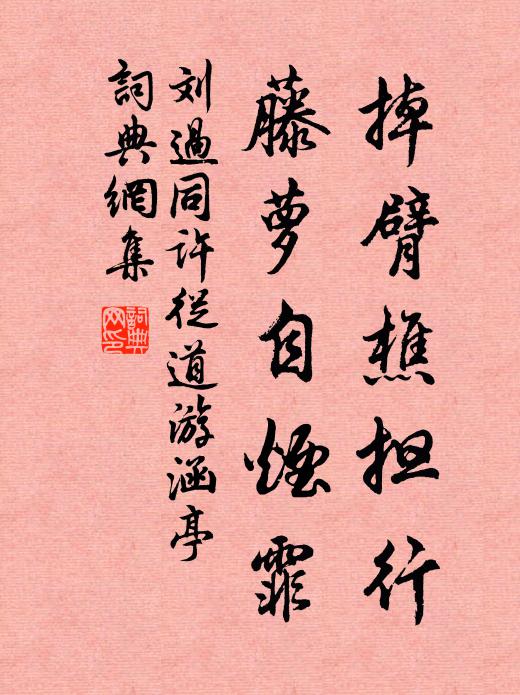 掉臂樵担行
藤萝自烟霏
刘过同许從道游涵亭
詞典網集
詞典网印